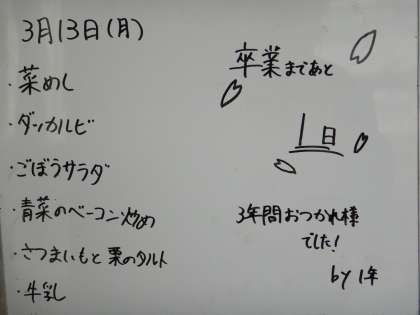 3月13日(月)
・菜めし
・ダッカルビ
・ごぼうサラダ
・青菜のベーコン炒め
・さつまいもと栗のタルト
・牛乳
卒業まであと
1日
3年間おつかれ様
でした!
by 1年